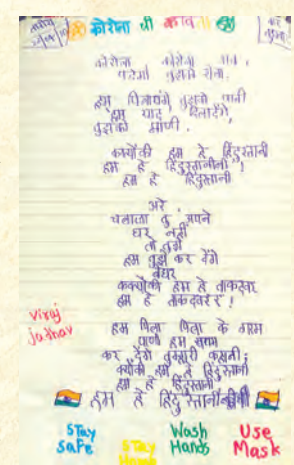 कोरोना की कविता
कोरोना कोरोना
पडेगा तुझको रोना,
हम पिलाएंगे तुझको पानी
हम याद दिलादेंगे,
तुझको नाणी.
क्योंकी हम है हिंदुस्तानी
हम है हिंदुस्तानी !
हम है हिंदुस्तानी
अरे,
चलाजा तु अपने
घर नहीं
तो तुझे
हम तुझे कर देंगे
बेघर
हम है ताकदवर
हम है ताकदवर !
हम पिला पिला के गरम
पाणी हम खतम
कर देंगे तुम्हारी कहानी;
क्योंकी हम है हिंदुस्तानी
हम है हिंदुस्तानी
हम है हिंदुस्तानी
Viraj
Jadhav
STay
Safe
STay
Home
Wash
Hands
Use
Mask